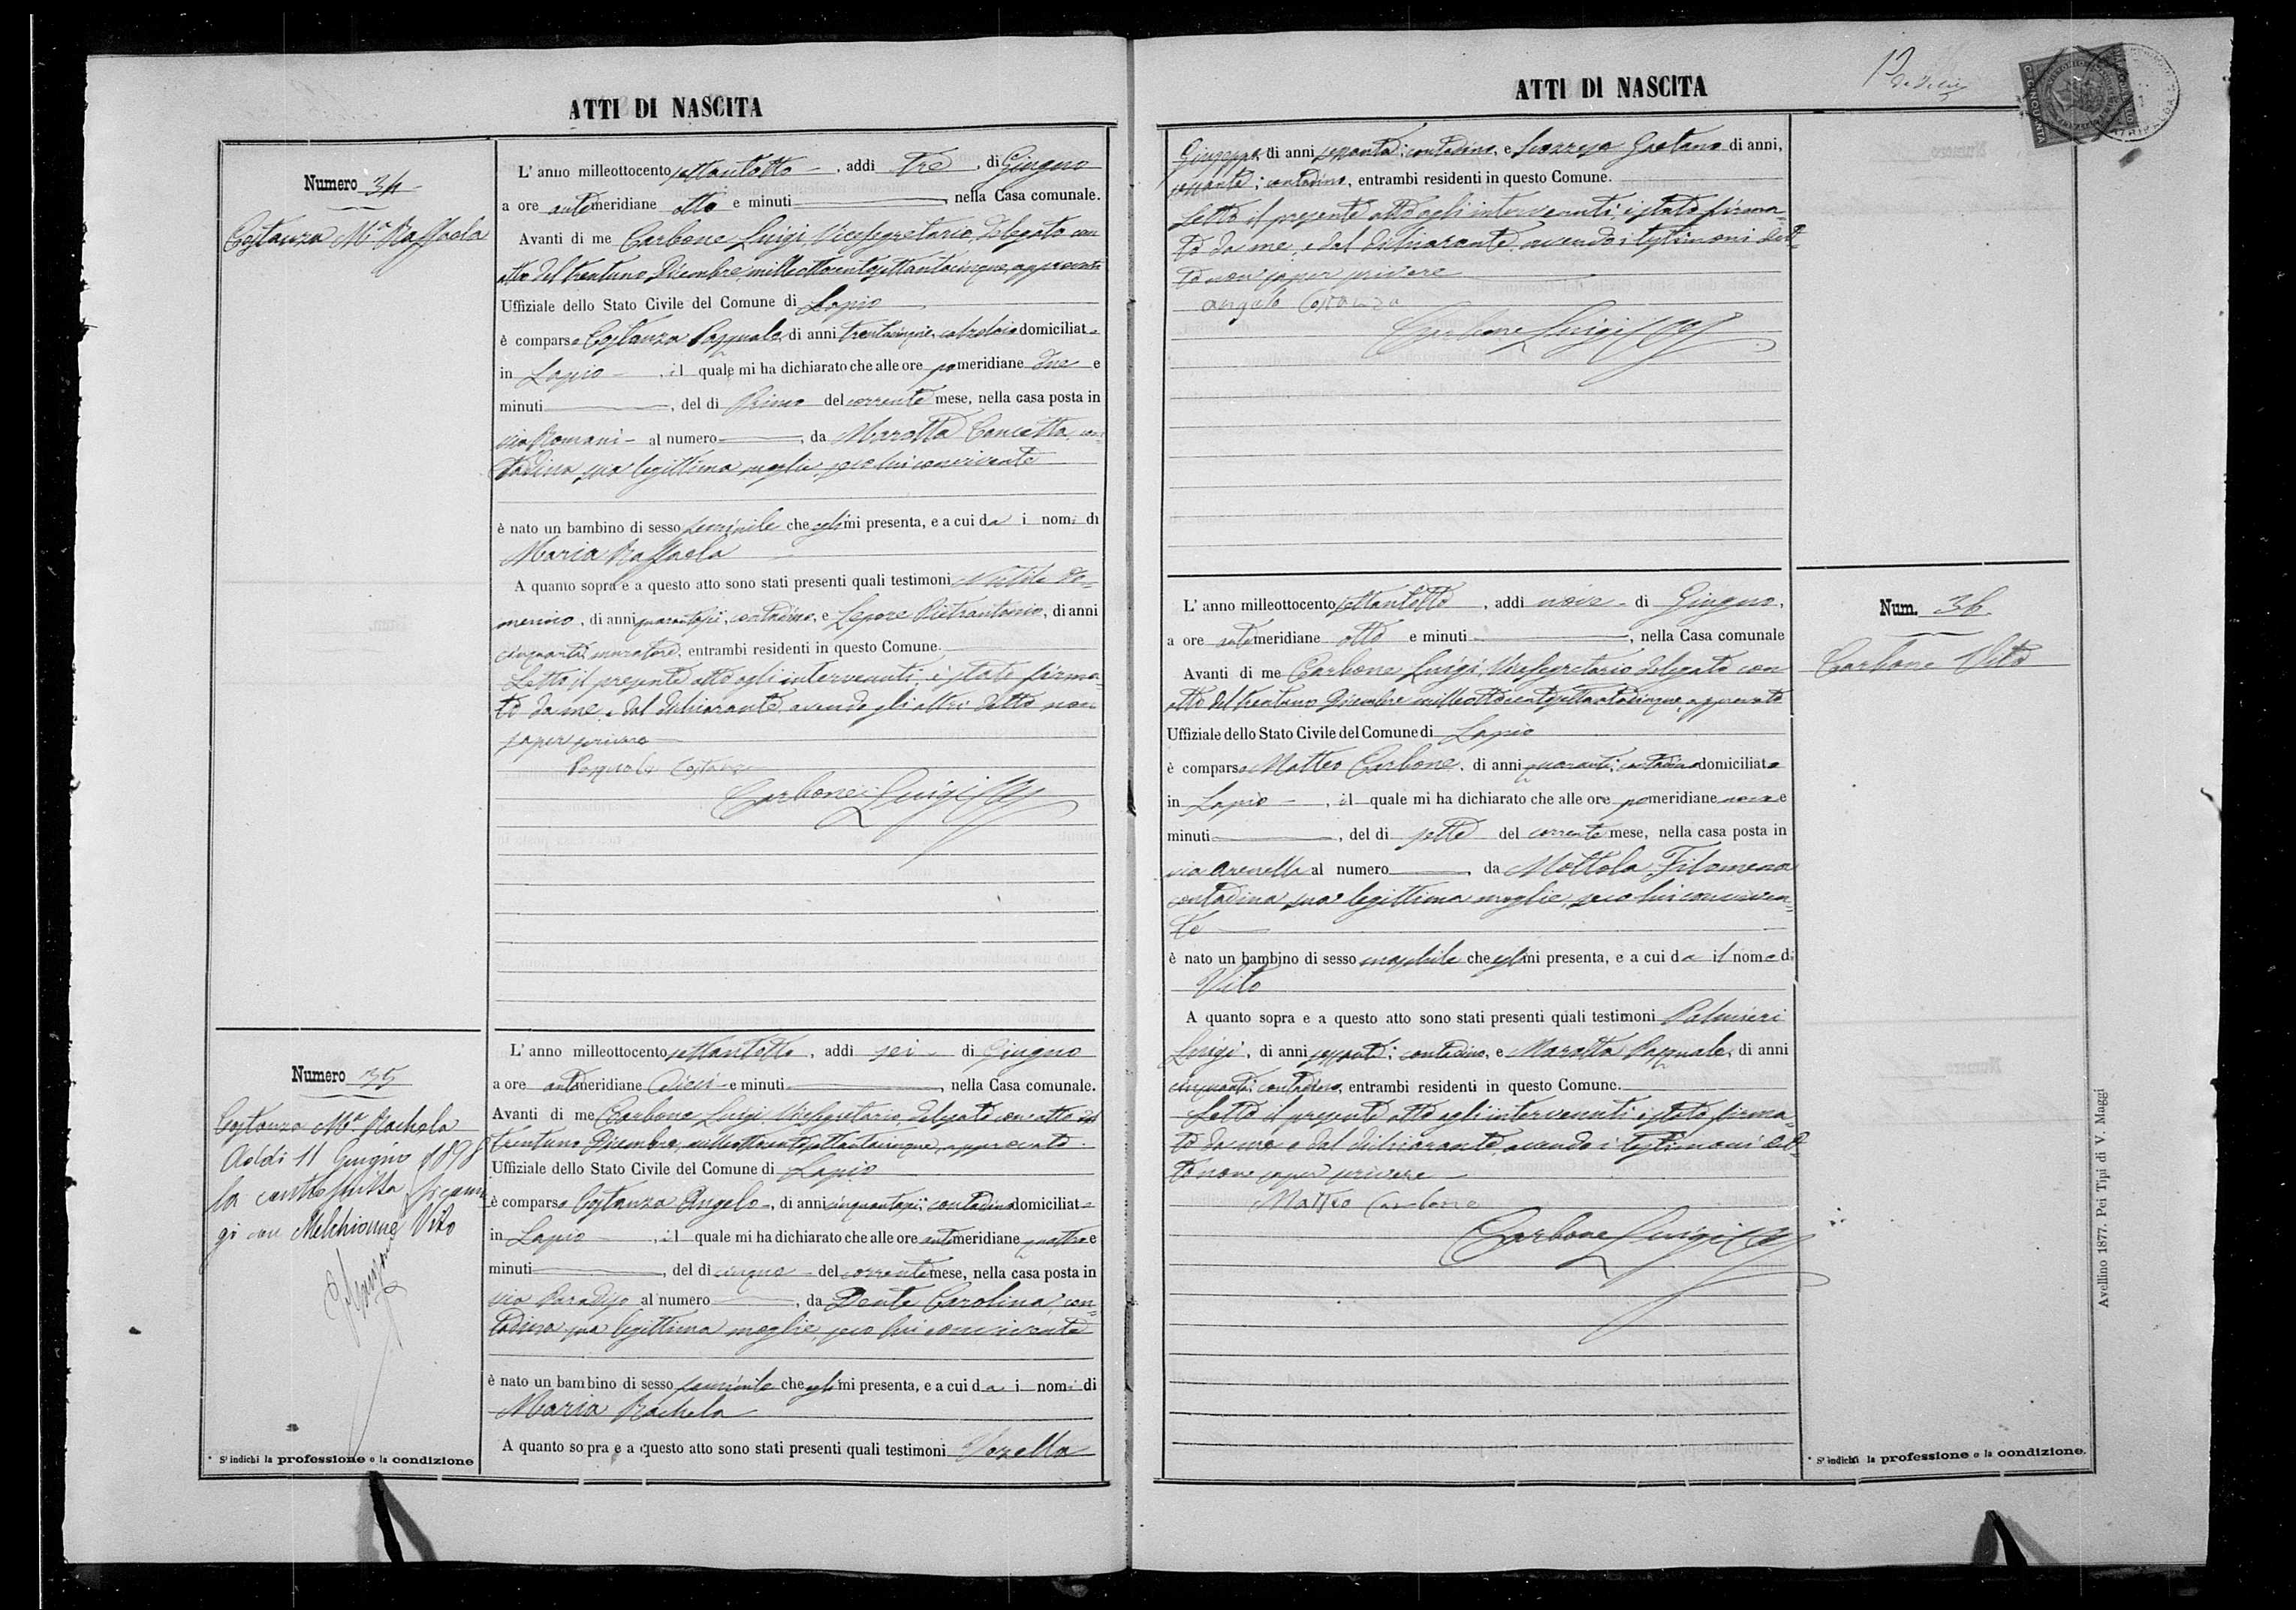 ATTI DI NASCITA
Numero 34
Costanza M.a Raffaela
L' anno milleottocento settantotto, addi tre di Giugno
a ore antimeridiane otto e minuti, nella Casa comunale.
Avanti di me Carbone Luigi Vicesegretario, delegato con
atto del trentuno Dicembre milleottocentosettantacinque, approvato
Uffiziale dello Stato Civile del Comune di Lapio
è comparso Costanza Pasquale, di anni trentacinque, calzolaio domiciliato
in Lapio, il quale mi ha dichiarato che alle ore pomeridiane due e
minuti, del di Primo del corrente mese, nella casa posta in
via Romani al numero, da Marotta Concetta, con=
tadina, sua legittima moglie, seco lui convivente
è nato un bambino di sesso feminile che egli mi presenta, e a cui da i nomi di
Maria Raffaela
A quanto sopra e a questo atto sono stati presenti quali testimoni Do=
menico, di anni quarantasei, contadino, e Lepore Pietrantonio, di anni
cinquanta, muratore, entrambi residenti in questo Comune.
Letto il presente atto agli intervenuti, è stato firma=
to da me, e dal dichiarante, avendo gli altri detto non
saper scrivere
Pasquale Costanza
Carbone Luigi
Numero 35
Costanza M.a Rachela
Addi 11 Giugno 1898
la contro scritta si coniu
gò con Melchionne Vito
L' anno milleottocento settantotto, addi sei di Giugno
a ore antimeridiane dieci e minuti, nella Casa comunale.
Avanti di me Carbone Luigi Vicesegretario, delegato con atto del
trentuno Dicembre milleottocentosettantacinque, approvato
Uffiziale dello Stato Civile del Comune di Lapio
è comparso Costanza Angelo, di anni cinquantasei, contadino domiciliato
in Lapio, il quale mi ha dichiarato che alle ore antimeridiane quattro e
minuti, del di cinque del corrente mese, nella casa posta in
via Paradiso al numero, da Dente Carolina, con=
tadina, sua legittima moglie, seco lui convivente
è nato un bambino di sesso feminile che egli mi presenta, e a cui da i nomi di
Maria Rachela
A quanto sopra e a questo atto sono stati presenti quali testimoni Vozella
* S'indichi la professione o la condizione
ATTI DI NASCITA
Giuseppe, di anni sessanta, contadino, e Scorzeso Gaetano di anni,
sessanta, contadino, entrambi residenti in questo Comune.
Letto il presente atto agli intervenuti, è stato firma=
to da me, e dal dichiarante, avendo i testimoni det=
to non saper scrivere
Angelo Costanza
Carbone Luigi
Num. 36
Carbone Vito
L' anno milleottocento settantotto, addi nove di Giugno,
a ore antimeridiane otto e minuti, nella Casa comunale
Avanti di me Carbone Luigi, Vicesegretario delegato con
atto del trentuno Dicembre milleottocentosettantacinque, approvato
Uffiziale dello Stato Civile del Comune di Lapio
è comparso Matteo Carbone, di anni quaranta, contadino domiciliato
in Lapio, il quale mi ha dichiarato che alle ore pomeridiane nove e
minuti, del di sette del corrente mese, nella casa posta in
via Arenella al numero, da Mottola Filomena
contadina sua legittima moglie, seco lui conviven=
te
è nato un bambino di sesso maschile che egli mi presenta, e a cui da il nome di
Vito
A quanto sopra e a questo atto sono stati presenti quali testimoni Palmieri
Luigi, di anni sessanta, contadino, e Marotta Pasquale, di anni
cinquanta, contadino, entrambi residenti in questo Comune.
Letto il presente atto agli intervenuti, è stato firma=
to da me e dal dichiarante, avendo i testimoni det=
to non saper scrivere
Matteo Carbone
Carbone Luigi
* S'indichi la professione o la condizione.
Avellino 1877. Pei Tipi di V. Maggi